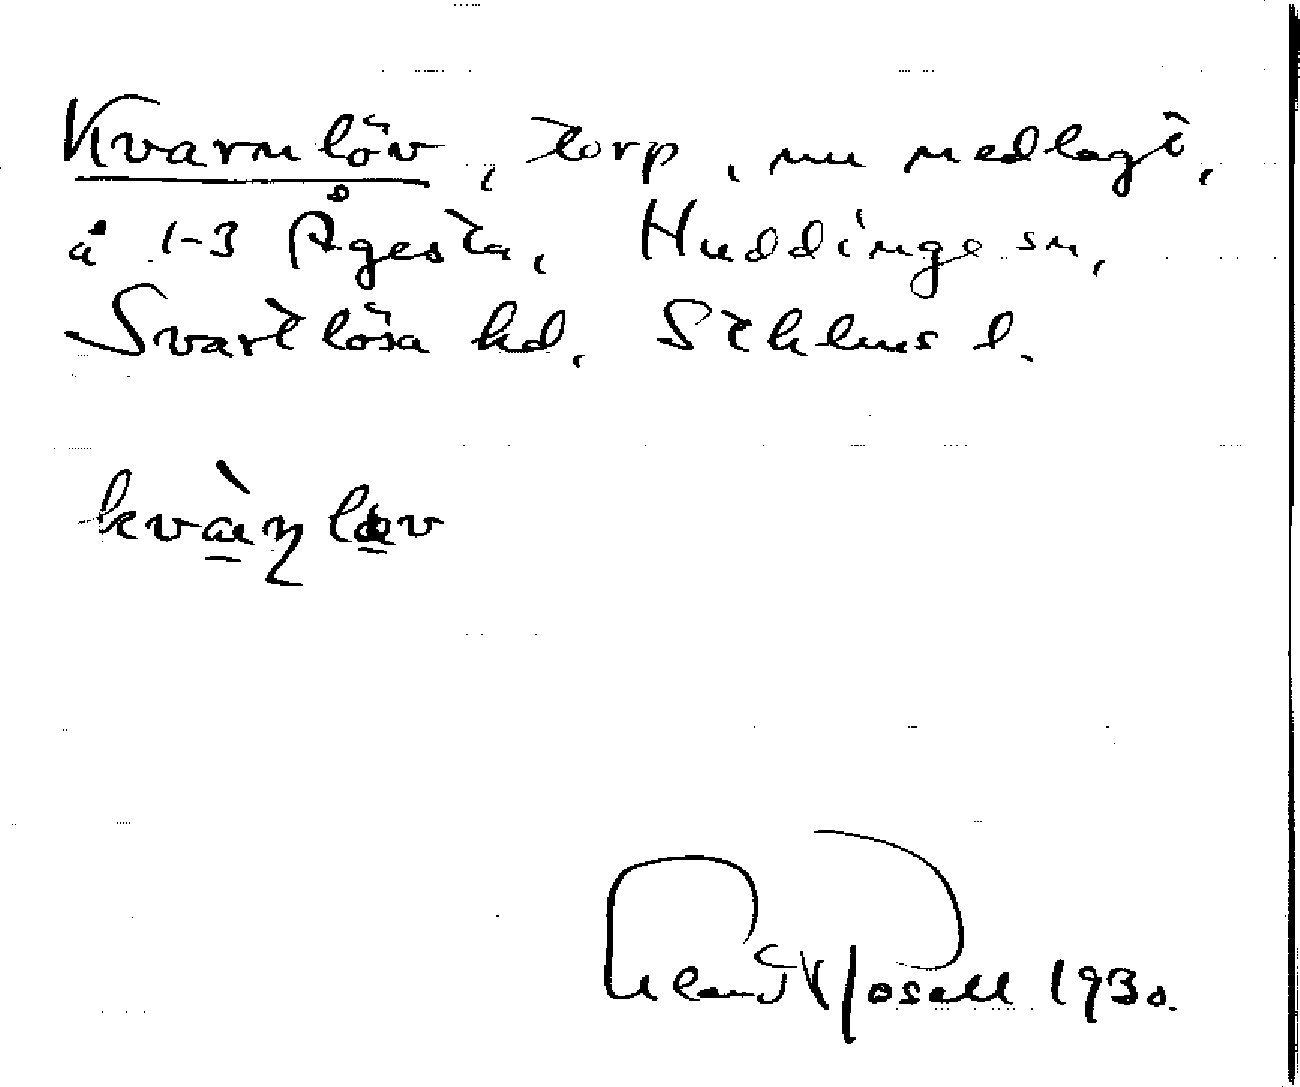 Kvarnlöv, torp, nu nedlagt,
å 1-3 Ågesta, Huddinge sn,
Svartlösa hd. Sthlms l.
Rosell 1930.